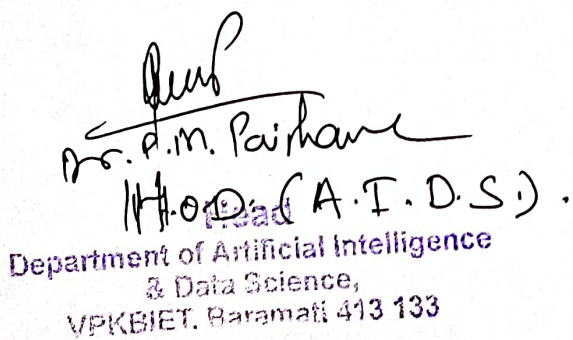 Dr. P.M. Paithane
H.O.D. (A.I.D.S.).
Head
Department of Artificial Intelligence
& Data Science,
VPKBIET, Baramati 413 133